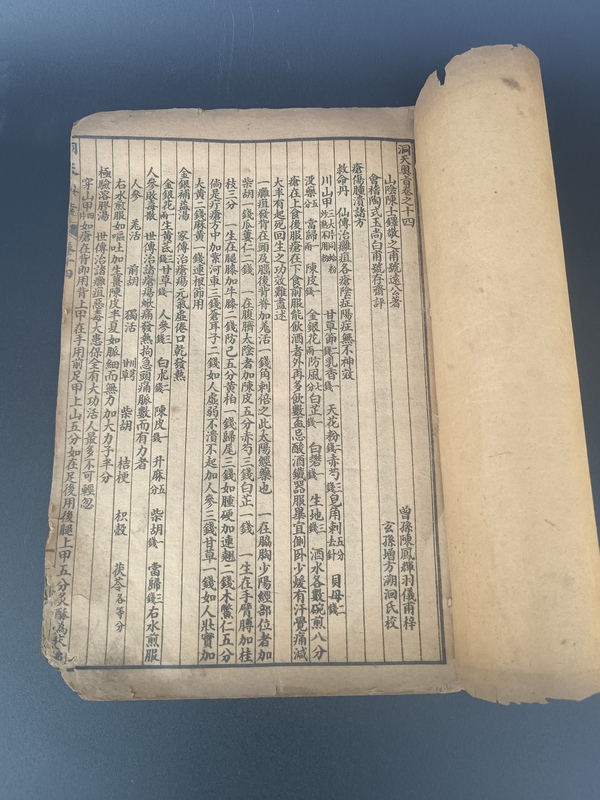 洞天奧旨卷之十四
山陰陳士鐸敬之甫號遠公著
會稽陶式玉尚白甫號存齋評
曾孫陳鳳輝羽儀甫梓
玄孫增方溯洄氏校
瘡瘍腫潰諸方
救命丹 仙傳治癰疽各瘡陰症陽症無不神效
川山甲三大片同蛤粉炒熟不用粉 甘草節二錢乳香一錢 天花粉二錢赤芍三錢皂角刺五分去針 貝母二錢
沒藥五分 當歸一兩 陳皮一錢 金銀花一兩防風七分白芷一錢 白礬一錢 生地三錢 酒水各數碗煎八分
瘡在上食後服瘡在下食前服能飲酒者外再多飲數盃忌酸酒鐵器服畢宜側卧少煖有汗覺痛減
大半有起死回生之功效難盡述
一癰疽發背在頭及腦後背脊加羌活一錢角刺倍之此太陽經藥也 一在脇胸少陽經部位者加
柴胡一錢瓜蔞二錢 一在腹臍太陰者加陳皮五分赤芍三錢白芷一錢 一生在手臂膊加桂
枝三分 一生在腿膝加牛膝二錢防己五分黃柏一錢歸尾三錢如腫硬加連翹二錢木鱉仁五分
倘是疔瘡方中加紫河車三錢蒼耳子三錢如人虛弱不潰不起加人參三錢甘草一錢如人壯實加
大黃一錢麻黃一錢連根節用
金銀補益湯 家傳治瘡瘍元氣虛倦口乾發熱
金銀花二兩生黃芪三錢甘草一錢 人參三錢 白朮二錢 陳皮一錢 升麻五分 柴胡一錢 當歸三錢右水煎服
人參敗毒散 世傳治諸瘡瘍焮痛發熱拘急頭痛脈數而有力者
人參 羌活 前胡 獨活 川芎 甘草 柴胡 桔梗 枳殼 茯苓各等分
右水煎服如嘔吐加生薑陳皮半夏如脈細而無力加大力子半分
極驗溶膠湯 世傳治諸癰疽惡毒大患保全有大功活人最多不可輕忽
穿山甲四片如瘡在背即用背上甲在手用前足甲上山五分如在足後用後腿上甲五分炙酥為末